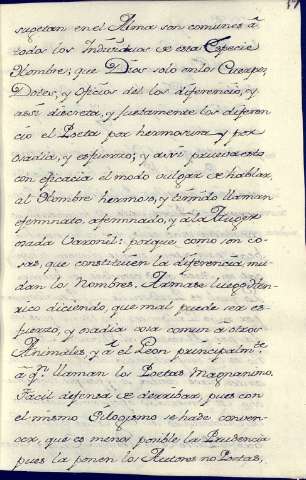 sujetan en el Alma son comunes á
todos los Individuos de esta Especie
Hombre; que Dios solo en los Cuerpos,
Dotes, y Oficios del los diferenció, y
assi discreta, y justamente los diferen
ció el Poeta por hermosura, y por
osadia, y esfuerzo; y assi prueva esto
con eficacia el modo vulgar de hablar,
al Hombre hermoso, y timido llaman
afeminado, y á la Muger
osada Varonil: porque como son co-
sas, que constituien la diferencia, mu-
dan los Nombres. Armase luego
rico diciendo, que mal puede ser es-
fuerzo, y osadia cosa comun a otros
Animales, y á el Leon principalmte.
á qn. llaman los Poetas Magnanimo.
Facil defensa de derribar, pues con
el mismo Silogismo se hade conven-
cer, que es menos posible la Prudencia
pues la ponen los Autores no Poetas,